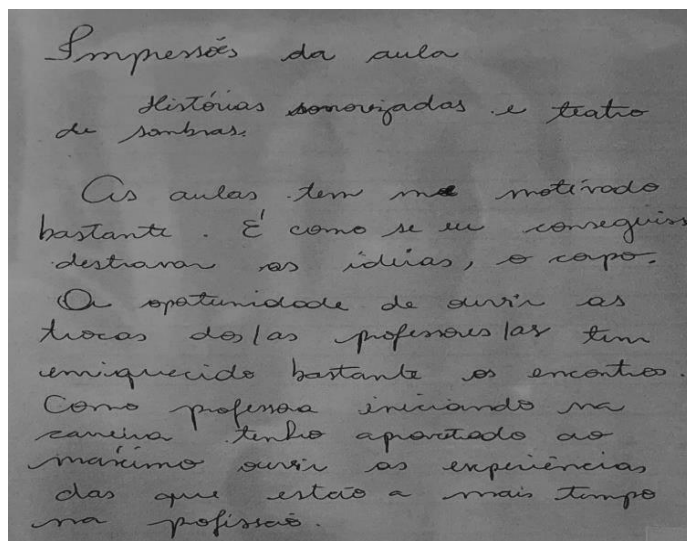 Impressões da aula
Histórias sonorizadas e teatro
de sombras.
As aulas tem me motivado
bastante. É como se eu conseguiss
destravar as ideias, o corpo.
A opotunidade de ouvir as
trocas dos/as professores/as tem
enriquecido bastante os encontros.
Como professora iniciando na
carreira tenho aproveitado ao
máximo ouvir as experiências
das que estão a mais tempo
na profissão.